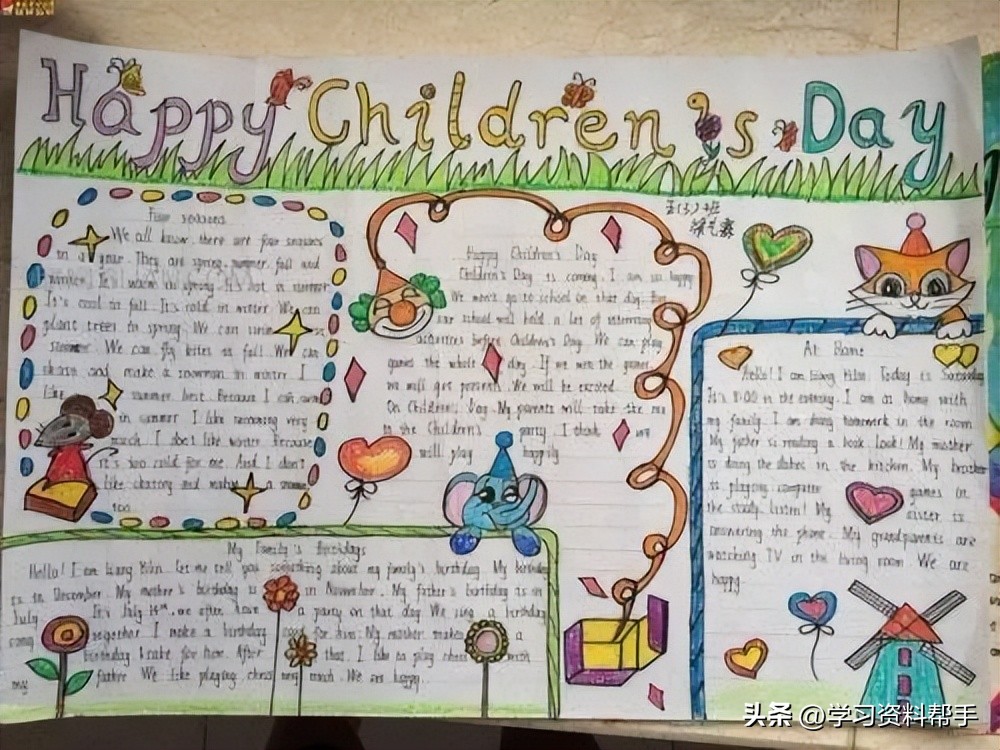 Happy Children's Day
五(3)班
Four seasons
We all know, there are four seasons
in a year. They are spring, summer, fall and
winter. It's warm in spring. It's hot in summer.
It's cool in fall. It's cold in winter. We can
plant trees in spring. We can swim in
summer. We can fly kites in fall. We can
skate and make a snowman in winter. I
like summer best. Because I can swim
in summer. I like swimming very
much. I don't like winter. Because
it's too cold for me. And I don't
like skating and making a snowman
too.
Happy Children's Day
Children's Day is coming. I am so happy.
We won't go to school on that day. But
our school will hold a lot of interesting
activities before Children's Day. We can play
games the whole day. If we win the games,
we will get presents. We will be excited.
On Children's Day. My parents will take me
to the Children's party. I think we
will play happily.
At Home
Hello! I am Liang Bilin. Today is Saturday.
It's 8:00 in the evening. I am at home with
my family. I am doing homework in the room.
My father is reading a book. Look! My mother
is doing the dishes in the kitchen. My brother
is playing computer games in
the study. Listen! My sister is
answering the phone. My grandparents are
watching TV in the living room. We are
happy.
My Family's Birthdays
Hello! I am Liang Let me tell you something about my family's birthday. My birthday
is in December. My mother's birthday is in November. My father's birthday is in
July. It's July 14th. we often have a party on that day. We sing a birthday
song together. I make a birthday card for him. My mother makes a
birthday cake for him. After that. I like to play chess with
my father. We like playing chess very much. We are happy.
头条 @学习资料帮手